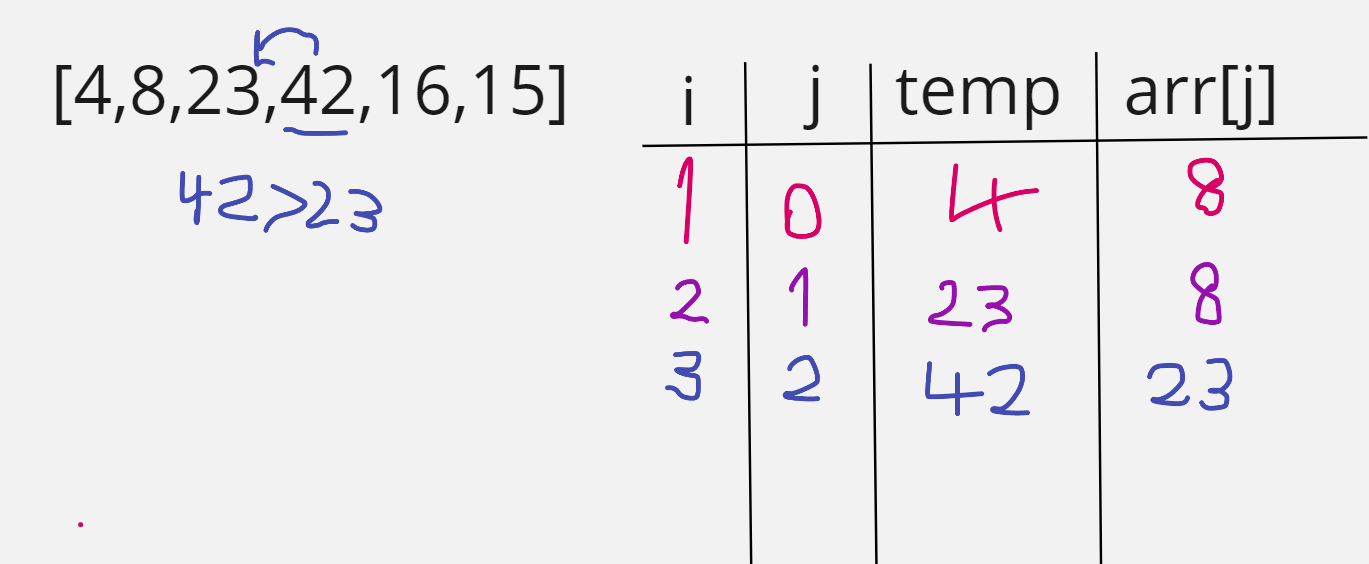 [4,8,23,42,16,15]
42>23
i j temp arr[j]
1 0 4 8
2 1 23 8
3 2 42 23